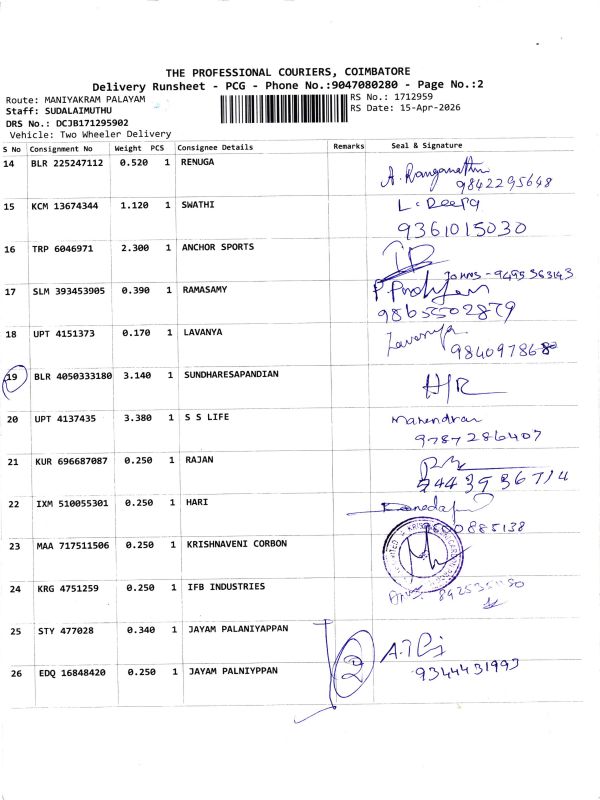 THE PROFESSIONAL COURIERS, COIMBATORE
Delivery Runsheet - PCG - Phone No.:9047080280 - Page No.:2
Route: MANIYAKRAM PALAYAM
RS No.: 1712959
Staff: SUDALAIMUTHU
RS Date: 15-Apr-2026
DRS No.: DCJB171295902
Vehicle: Two Wheeler Delivery
S No Consignment No Weight PCS Consignee Details Remarks Seal & Signature
14 BLR 225247112 0.520 1 RENUGA
9842295648
15 KCM 13674344 1.120 1 SWATHI L. Deepa
9361015030
16 TRP 6046971 2.300 1 ANCHOR SPORTS
17 SLM 393453905 0.390 1 RAMASAMY
9865502879
18 UPT 4151373 0.170 1 LAVANYA Lavanya
19 BLR 4050333180 3.140 1 SUNDHARESAPANDIAN H/R
20 UPT 4137435 3.380 1 S S LIFE
9787286407
21 KUR 696687087 0.250 1 RAJAN
22 IXM 510055301 0.250 1 HARI
23 MAA 717511506 0.250 1 KRISHNAVENI CORBON
24 KRG 4751259 0.250 1 IFB INDUSTRIES
25 STY 477028 0.340 1 JAYAM PALANIYAPPAN
2
26 EDQ 16848420 0.250 1 JAYAM PALNIYPPAN
9344431993